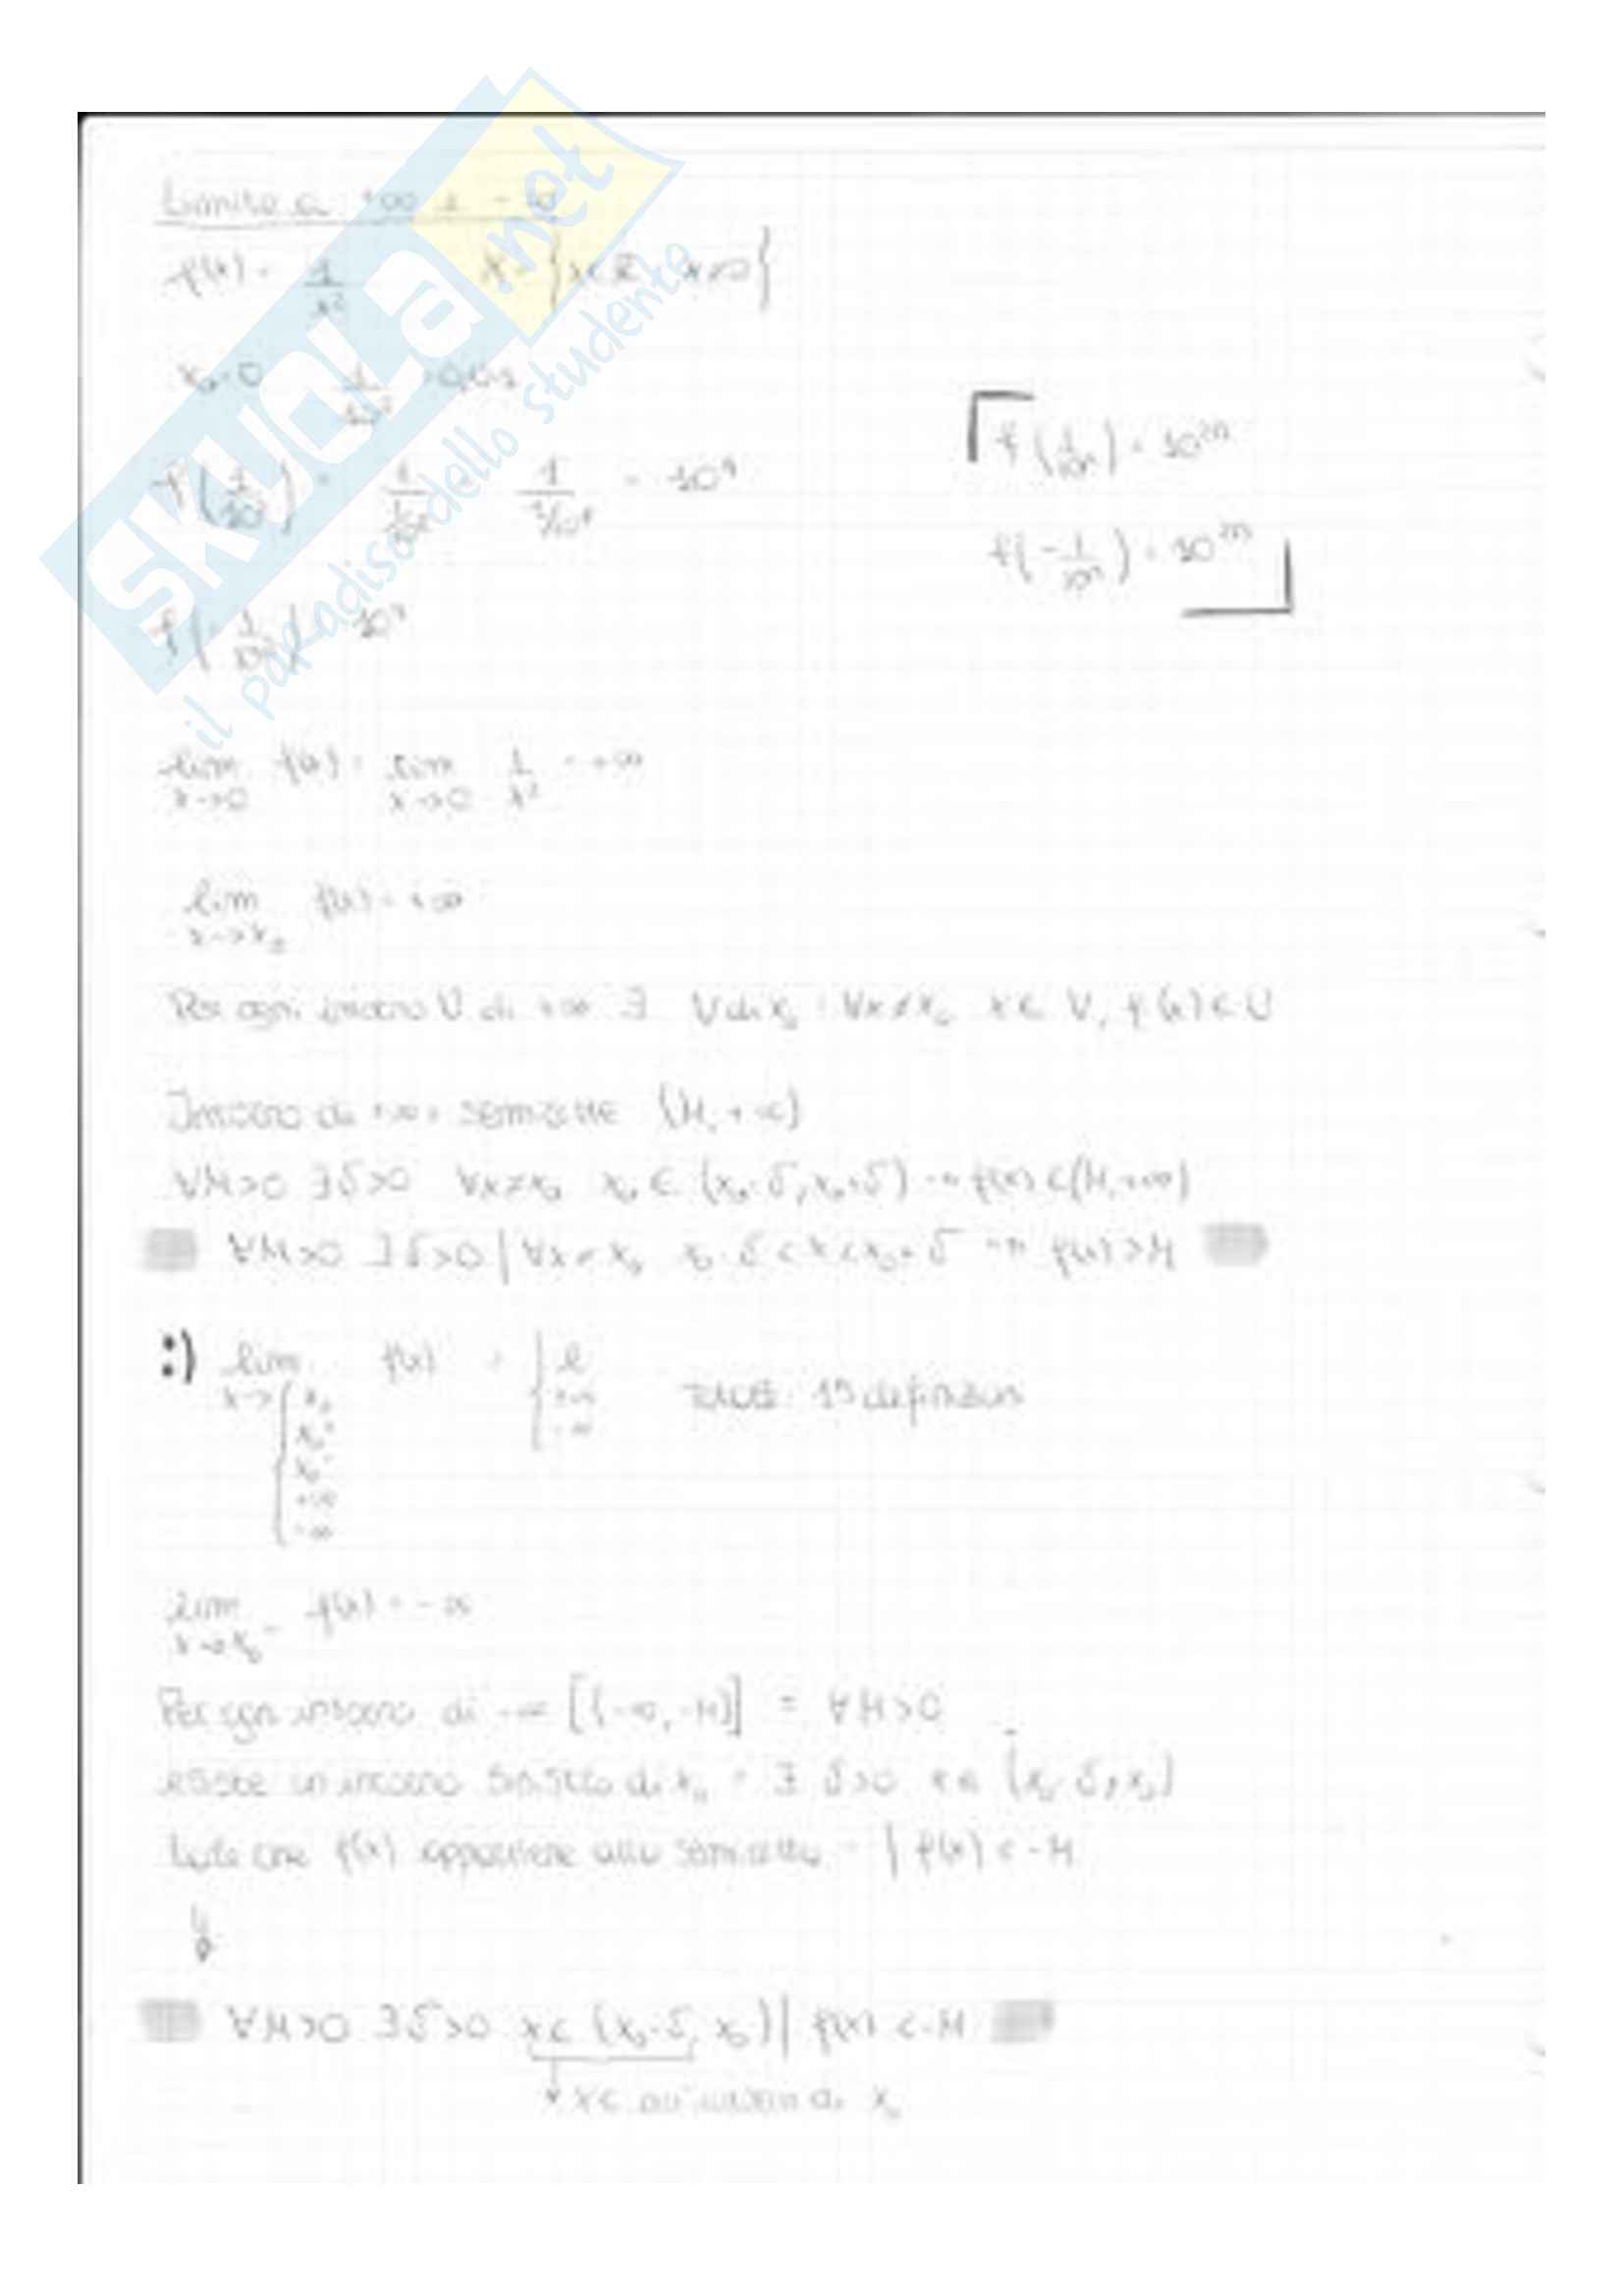 Limite a +∞ e -∞
f(x) = 1/x² X = {x∈R : x≠0}
x₀=0 1/10² = 0,01
f(1/10²) = = 1/(1/10⁴) = 10⁴
f(1/10ⁿ) = 10²ⁿ
f(-1/10ⁿ) = 10²ⁿ
lim x→0 f(x) = lim x→0 1/x² = +∞
lim x→x₀ f(x) = +∞
Per ogni intorno U di +∞ ∃ V di x₀ : ∀x≠x₀ x∈V, f(x)∈U
Intorno di +∞ = semirette (M, +∞)
∀M>0 ∃δ>0 ∀x≠x₀ x₀ ∈ (x₀-δ, x₀+δ) f(x)∈(M,+∞)
∀M>0 ∃δ>0 | ∀x≠x₀ x₀-δ<x<x₀+δ f(x)>M
:) lim x→ { x₀ x₀⁺ x₀⁻ +∞ -∞ f(x) = { l +∞ -∞ 15 definizioni
lim x→x₀⁻ f(x) = -∞
Per ogni intorno di -∞ [(-∞, -M)] = ∀M>0
esiste un intorno sinistro di x₀ = ∃ δ>0 (x₀-δ, x₀)
tale che f(x) appartiene alla semiretta = | f(x) < -M
∀M>0 ∃δ>0 x∈(x₀-δ, x₀) | f(x) < -M
x∈ all'intorno di x₀
SKUOLA.net
il paradiso dello studente